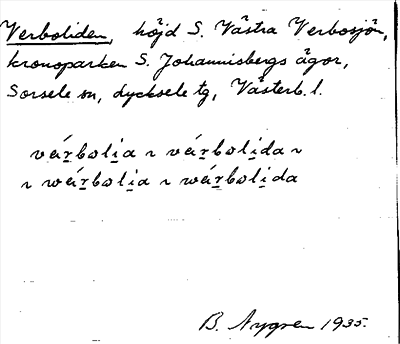 Verboliden, höjd S. Västra Verbosjön,
kronoparken S. Johannisbergs ägor,
Sorsele sn, Lycksele tg, Västerb. l.
várbolia ~ várbolida ~
~ wárbolia ~ wárbolida
B. Nygren 1935.